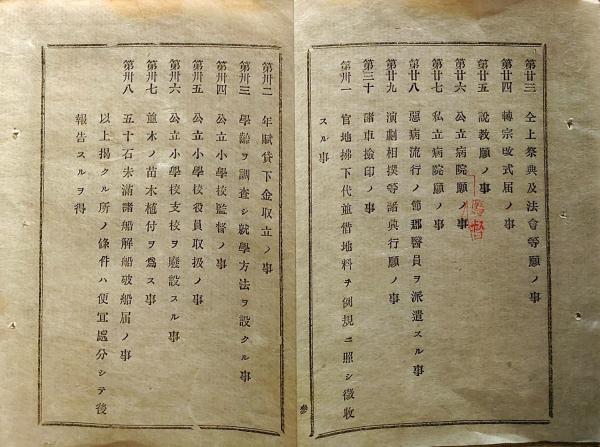 第廿三　仝上祭典及法會等願ノ事
第廿四　轉宗改式届ノ事
第廿五　説教願ノ事
第廿六　公立病院願ノ事
第廿七　私立病院願ノ事
第廿八　惡病流行ノ節郡醫員ヲ派遣スル事
第廿九　演劇相撲等諸興行願ノ事
第三十　諸車撿印ノ事
第卅一　官地拂下代並借地料ヲ例規ニ照シ徴收
スル事
第卅二　年賦貸下金取立ノ事
第卅三　學齡ヲ調査シ就學方法ヲ設クル事
第卅四　公立小學校監督ノ事
第卅五　公立小學校役員取扱ノ事
第卅六　公立小學校支校ヲ廢設スル事
第卅七　並木ノ苗木植付ヲ爲ス事
第卅八　五十石未滿諸船解船破船届ノ事
以上掲クル所ノ條件ハ便宜處分シテ後
報告スルヲ得